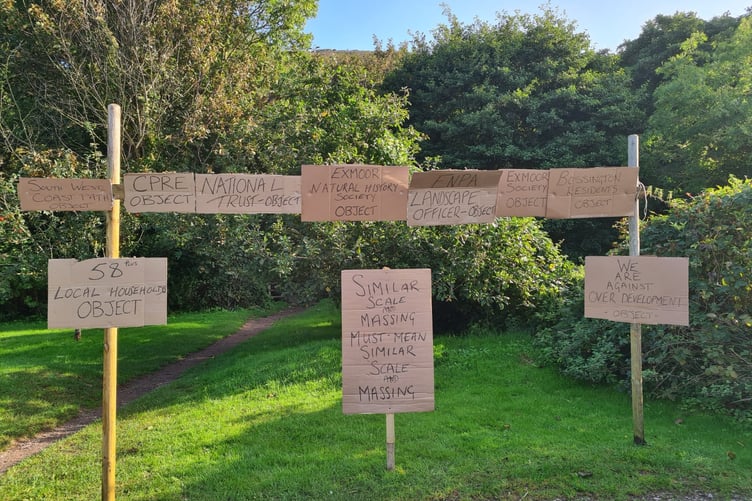 SOUTH WEST
COAST PATH
OBJECT
CPRE
OBJECT
NATIONAL
TRUST-OBJECT
EXMOOR
NATURAL HISTORY
SOCIETY
OBJECT
ENPA
LANDSCAPE
OFFICER-OBJECT
EXMOOR
SOCIETY
OBJECT
BOSSINGTON
RESIDENTS
OBJECT
58 PLUS
LOCAL HOUSEHOLDS
OBJECT
SIMILAR
SCALE
AND
MASSING
MUST MEAN
SIMILAR
SCALE
AND
MASSING
WE
ARE
AGAINST
OVER DEVELOPMENT
- OBJECT -